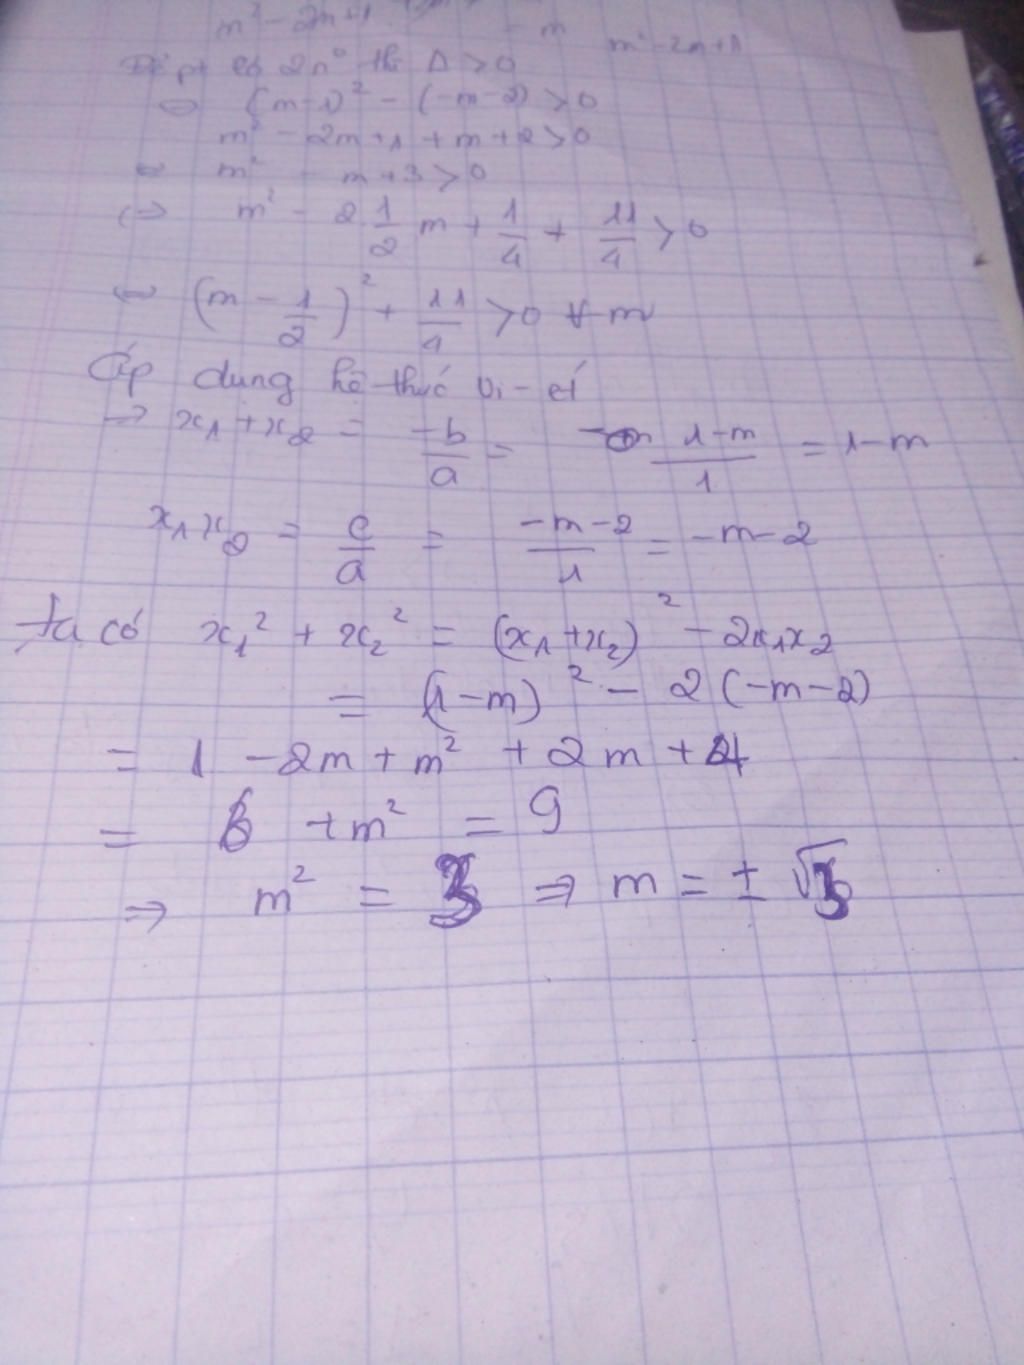 m² - 2m+1 - m m² - 2m+1
Để pt có 2n⁰ thì Δ > 0
⇔ (m-1)² - (-m-2) > 0
m² - 2m+1 + m+2 > 0
⇔ m² - m+3 > 0
⇔ m² - 2 1/2 m + 1/4 + 11/4 > 0
⇔ (m - 1/2)² + 11/4 > 0 ∀ m
Áp dụng hệ thức vi-ét
→ x₁ + x₂ = -b/a = 1-m/1 = 1-m
x₁x₂ = c/a = -m-2/1 = -m-2
Ta có x₁² + x₂² = (x₁+x₂)² - 2x₁x₂
= (1-m)² - 2(-m-2)
= 1 - 2m + m² + 2m + 4
= + m² = 9
⇒ m² = ⇒ m = ± √